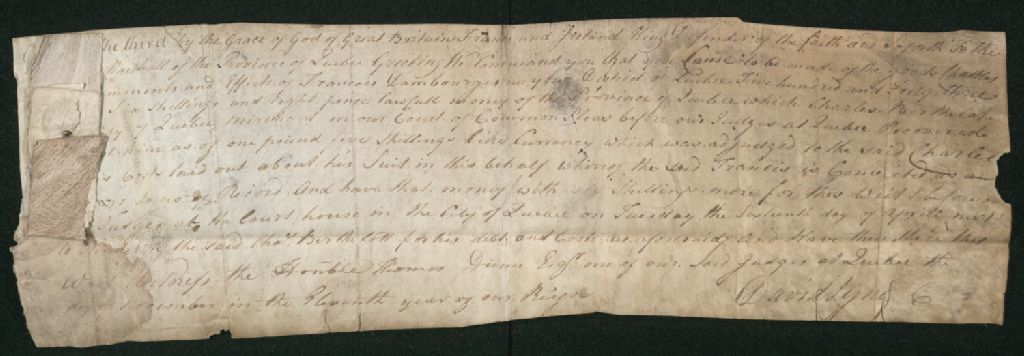 the third by the Grace of God of Great Britain France and Ireland King Defender of the faith and so forth To the
Marshall of the Province of Quebec Greeting We Command you that you Cause to be made of the goods Chattles
and Effects of Francois in your of Quebec Five hundred and Forty three
Six Shillings and Eight pence lawfull money of the Province of Quebec which Charles Berthelot
of Quebec merchant in our Court of Common Pleas before our Judges at Quebec Recovered
him as of one pound five Shillings like Currency which was adjudged to the said Charles
Costs laid out about his Suit in this behalf whereof the said Francis is Convicted as
to us of Record And have that money with six Shillings more for this Writ before our
Judges at the Court house in the City of Quebec on Tuesday the day of April next
the said Chas. Berthelott for his debt and Costs aforesaid, and have then there this
Witness the Honble Thomas Dunn Esqr. one of our said Judges at Quebec the
in the Eleventh year of our Reign
David Lynd